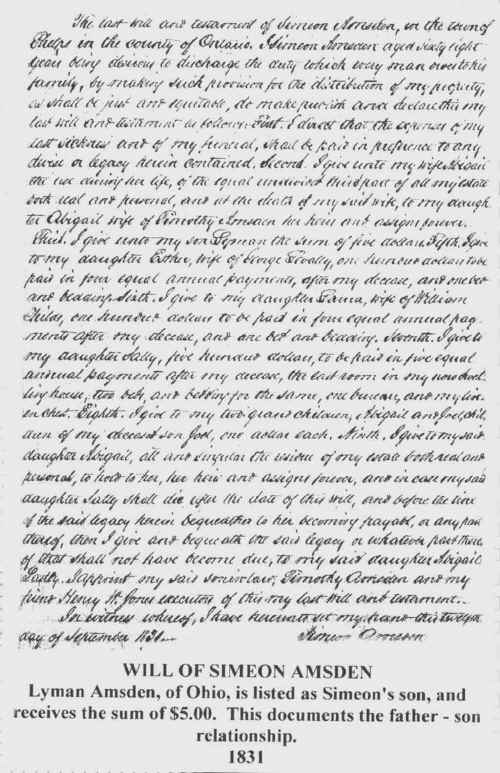 The last will and testament of Simeon Amsden, in the town of
Phelps in the county of Ontario. I Simeon Amsden aged sixty eight
years being desirous to discharge the duty which every man owes to his
family, by making such provision for the distribution of my property,
as shall be just and equitable, do make publish and declare this my
last will and testament as follows. First. I direct that the expenses of my
last sickness and of my funeral, shall be paid in preference to any
devise or legacy herein contained, Second. I give unto my wife Abigail
the use during her life, of the equal undivided third part of all my estate
both real and personal, and at the death of my said wife, to my daugh
ter Abigail wife of Timothy Amsden her heirs and assigns forever.
Third. I give unto my son Lyman the sum of five dollars Fifth. I give
to my daughter Esther, wife of George one hundred dollars to be
paid in four equal annual payments, after my decease, and one bed
and bedding. Sixth. I give to my daughter wife of William
Childs, one hundred dollars to be paid in four equal annual pay-
ments after my decease, and one bed and bedding. Seventh. I give to
my daughter Sally, five hundred dollars, to be paid in five equal
annual payments after my decease, the east room in my now dwel-
ling house, two beds, and bedding for the same, one bureau, and my lin-
en chest. Eighth. I give to my two grand children, Abigail and Joel, chil
dren of my deceased son Joel, one dollar each. Ninth, I give to my said
daughter Abigail, all and singular the residue of my estate both real and
personal, to hold to her, her heirs and assigns forever, and in case my said
daughter Sally shall die after the date of this will, and before the time
of the said legacy herein bequeathed to her becoming payable, or any part
thereof, then I give and bequeath the said legacy or whatever part there
of that shall not have become due, to my said daughter Abigail
Lastly. I appoint my said son in law, Timothy Amsden and my
friend Henry H. Jones executors of this my last will and testament..
In witness whereof, I have hereunto set my hand this twelfth
day of September 1831.
Simeon Amsden
WILL OF SIMEON AMSDEN
Lyman Amsden, of Ohio, is listed as Simeon's son, and
receives the sum of $5.00. This documents the father - son
relationship.
1831